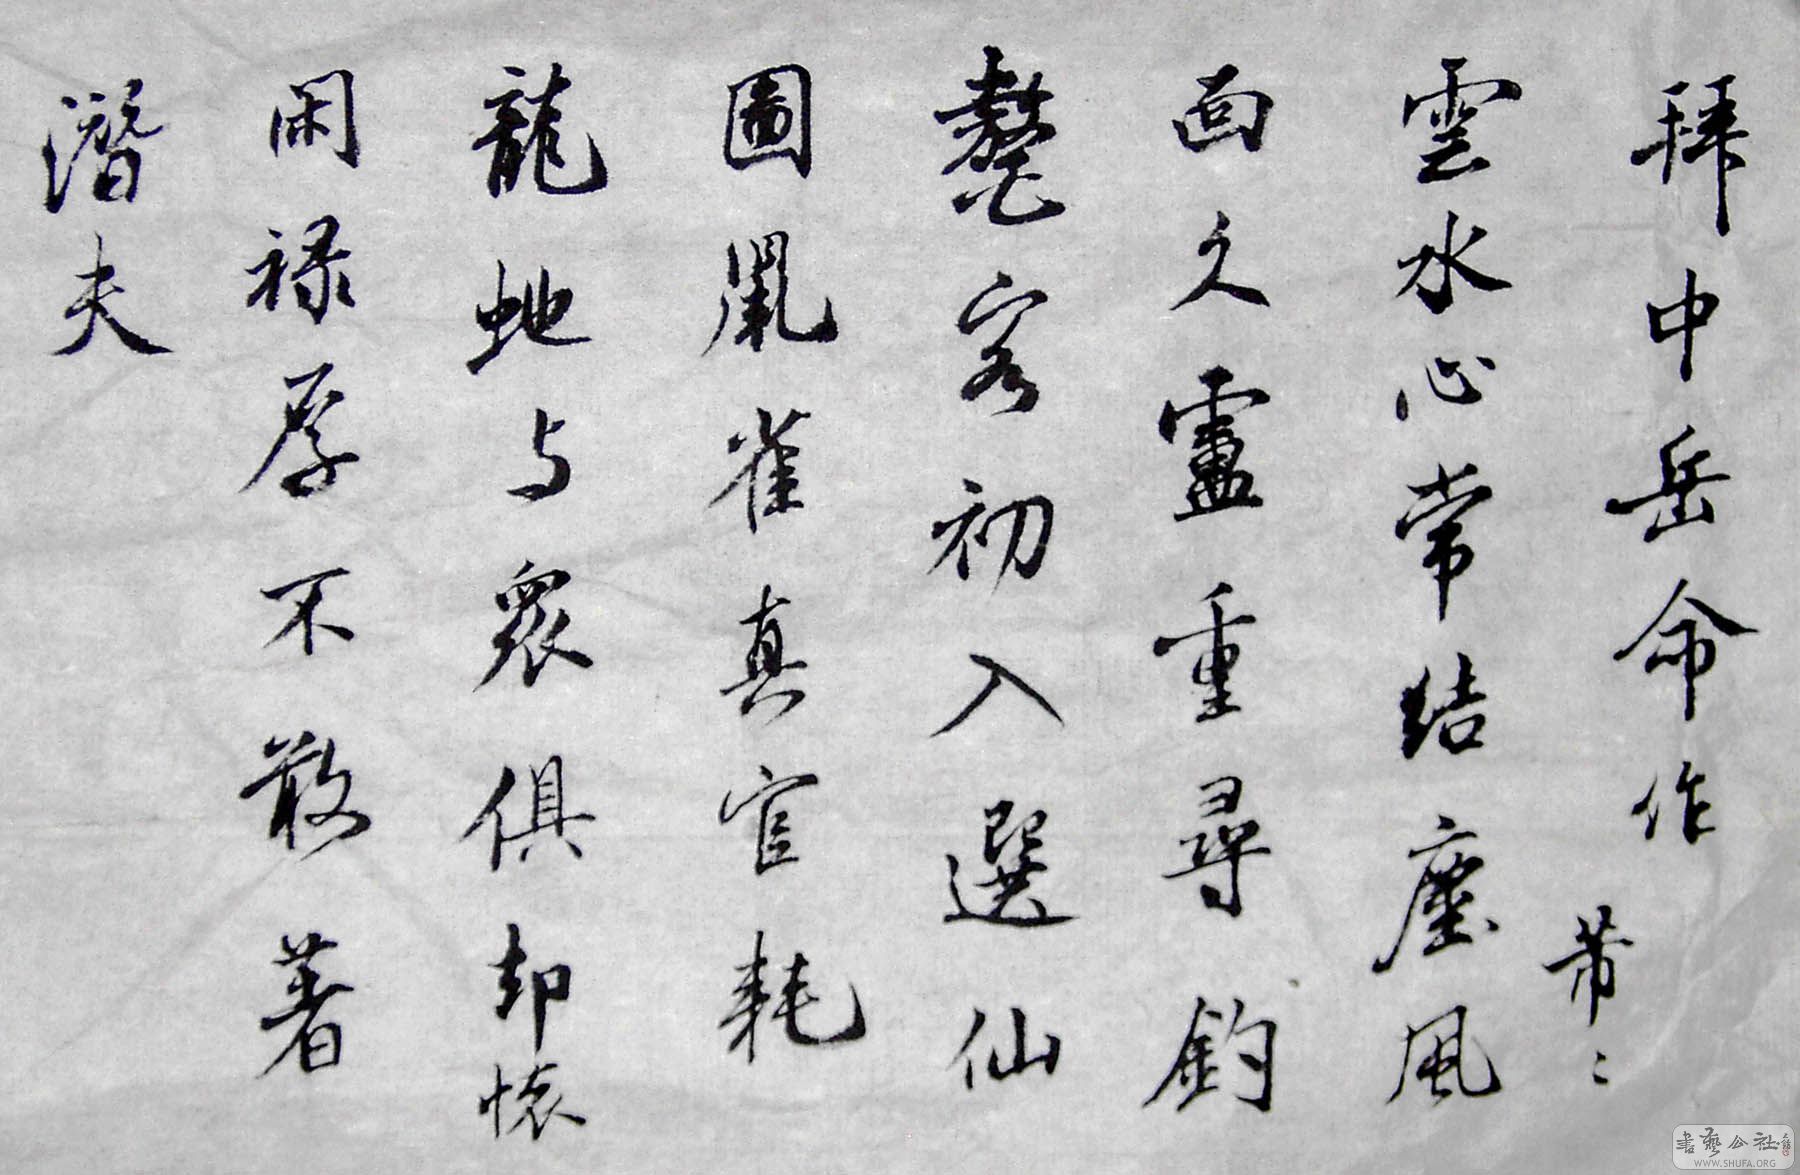 拜中岳命作 芾〻
雲水心常結塵風
面久盧重尋釣
鼇客初入選仙
圖鼠雀真官耗
龍蛇与衆俱却懷
閑禄厚不敢著
潛夫
書藝公社
WWW.SHUFA.ORG